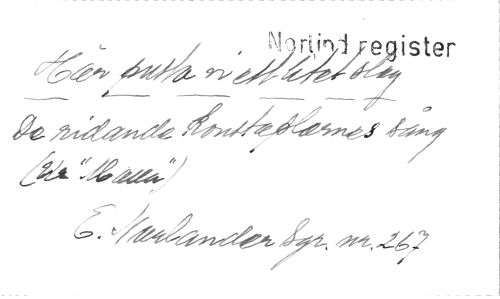 Norlind register
Här pusta vi ett litet slag
De ridande Konstaplarnes sång
(ur "Malla")
E. Norlander Sgr. nr. 267